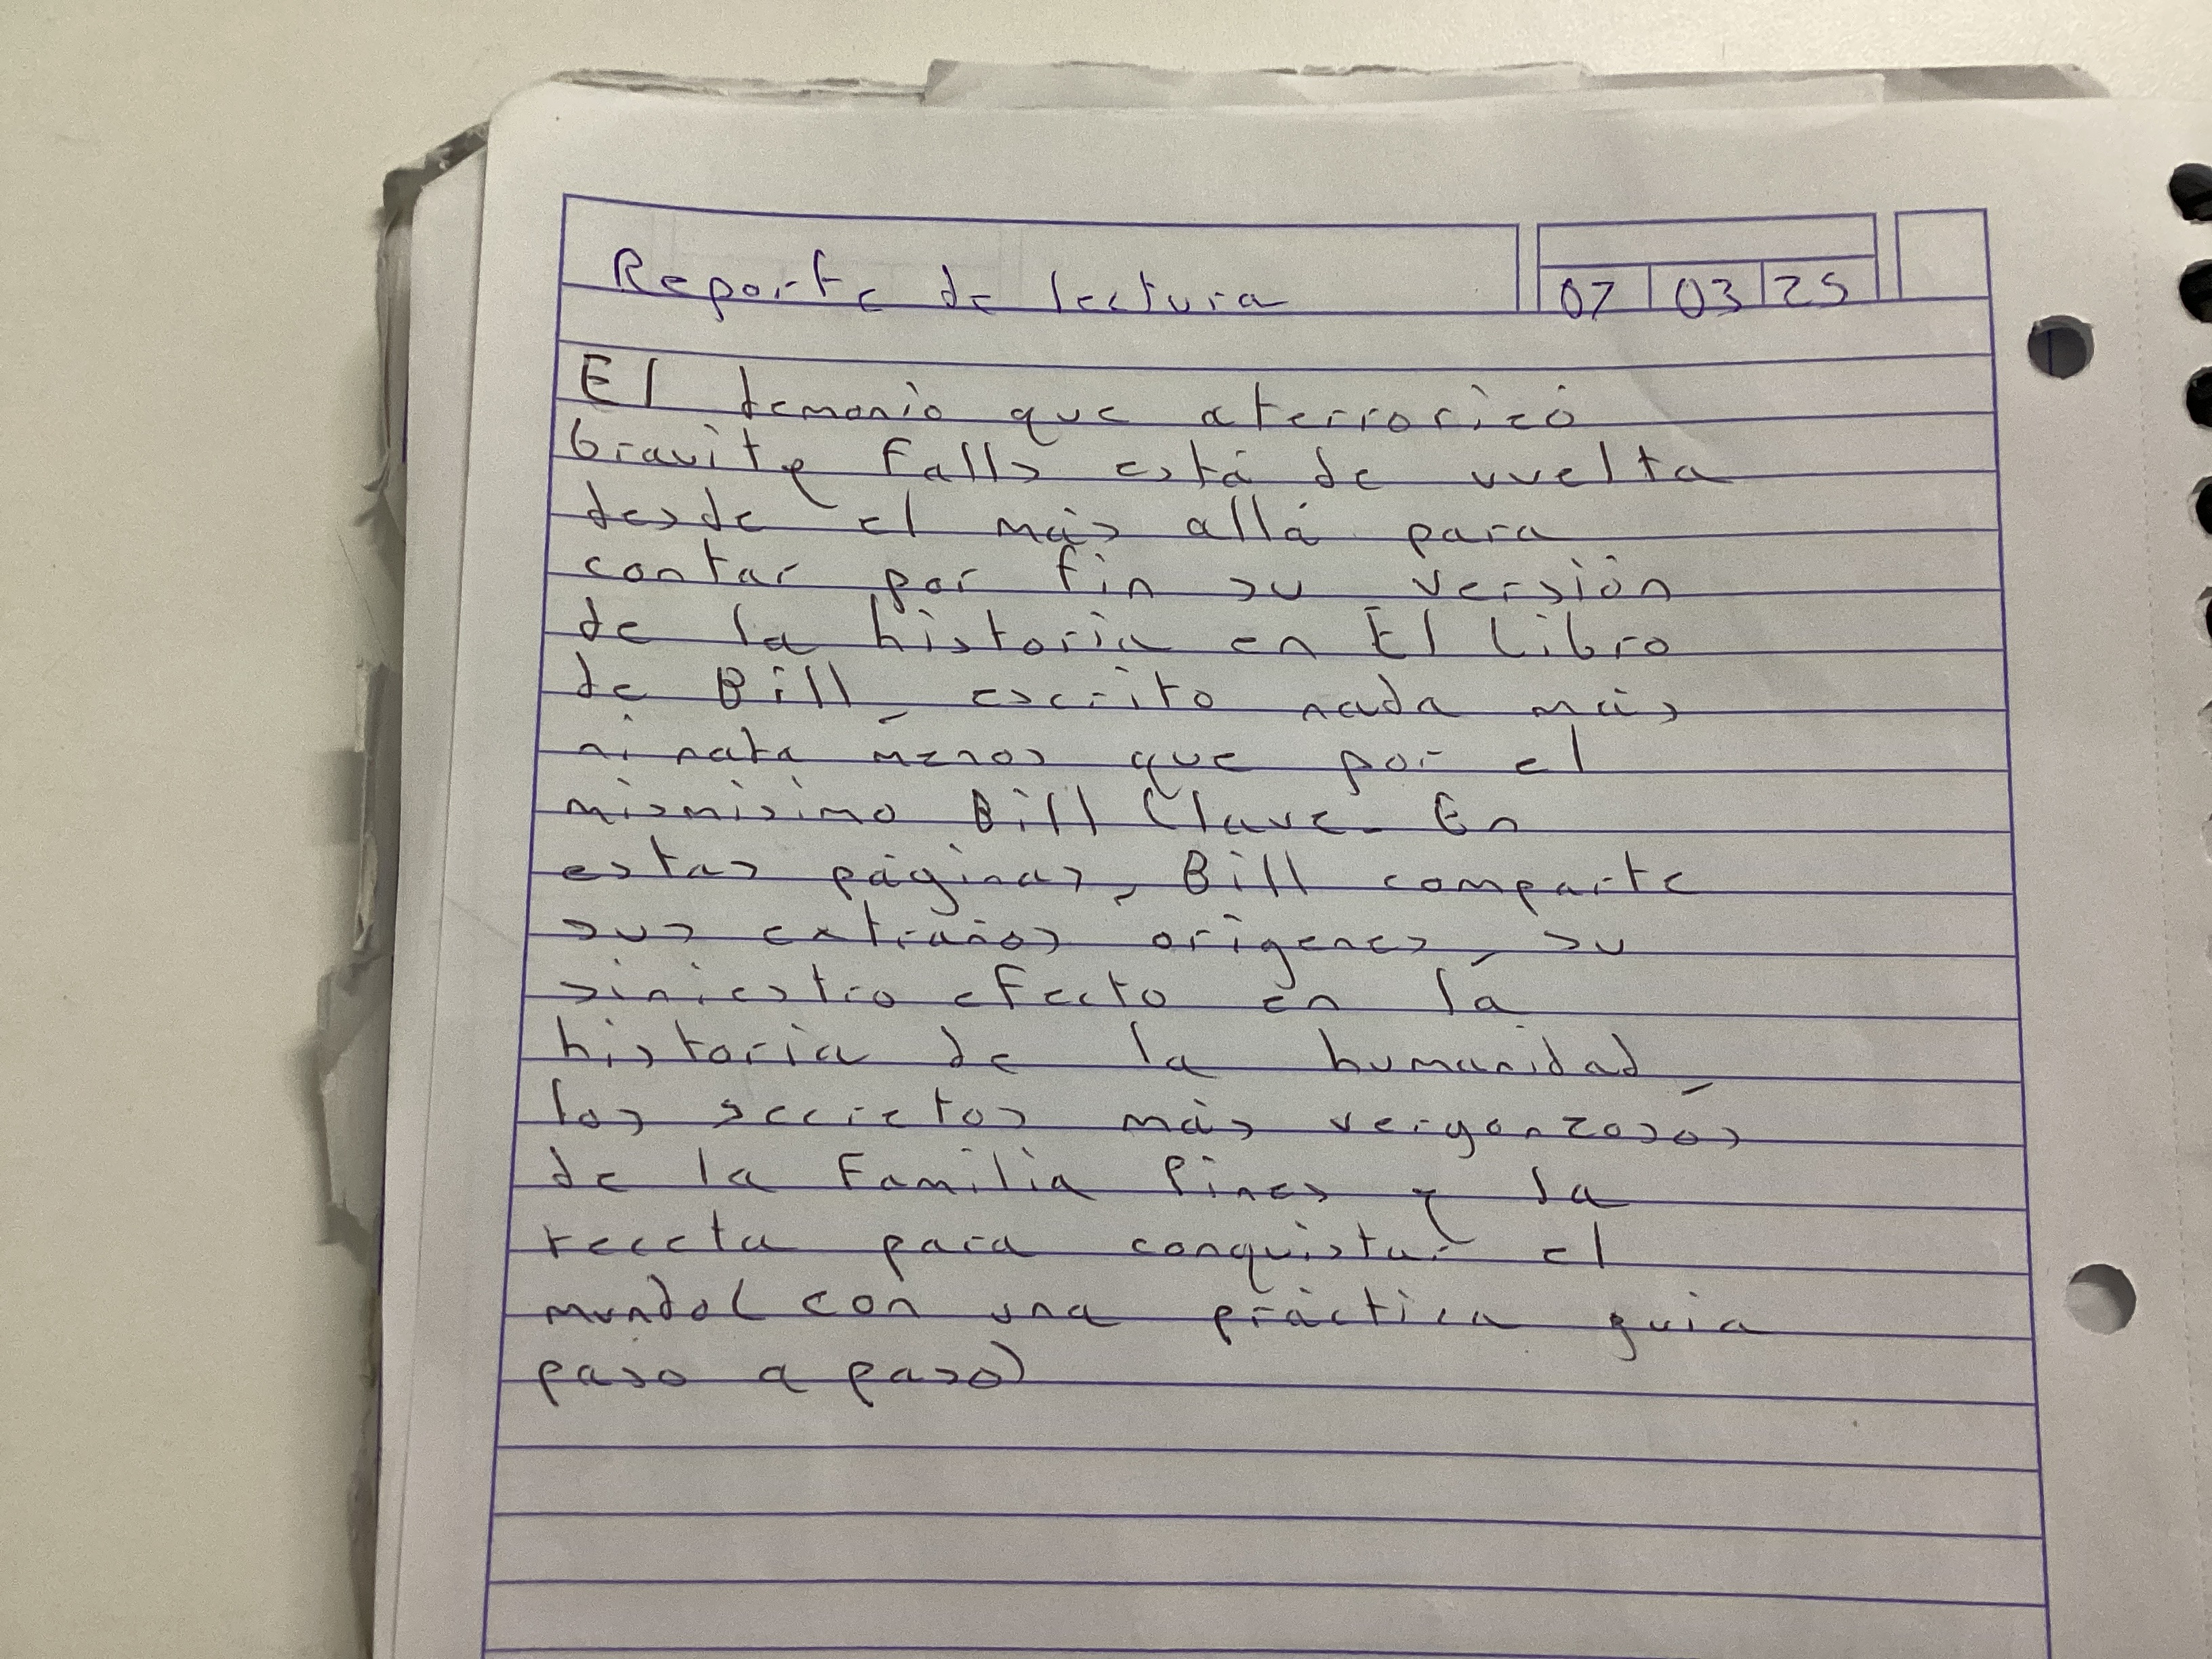 Reporte de lectura
07 03 25
El demonio que aterrorizó
Gravity Falls está de vuelta
desde el más allá para
contar por fin su versión
de la historia en El Libro
de Bill, escrito nada más
ni nata menos que por el
mismísimo Bill Clave. En
estas páginas, Bill comparte
sus extraños orígenes, su
siniestro efecto en la
historia de la humanidad,
los secretos más vergonzosos
de la familia Pines y la
receta para conquistar el
mundo( con una práctica guía
paso a paso)